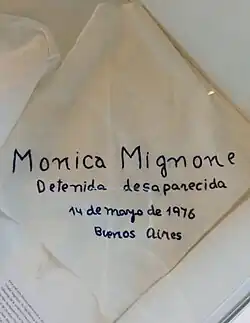 Monica Mignone
Detenida desaparecida
14 de mayo de 1976
Buenos Aires